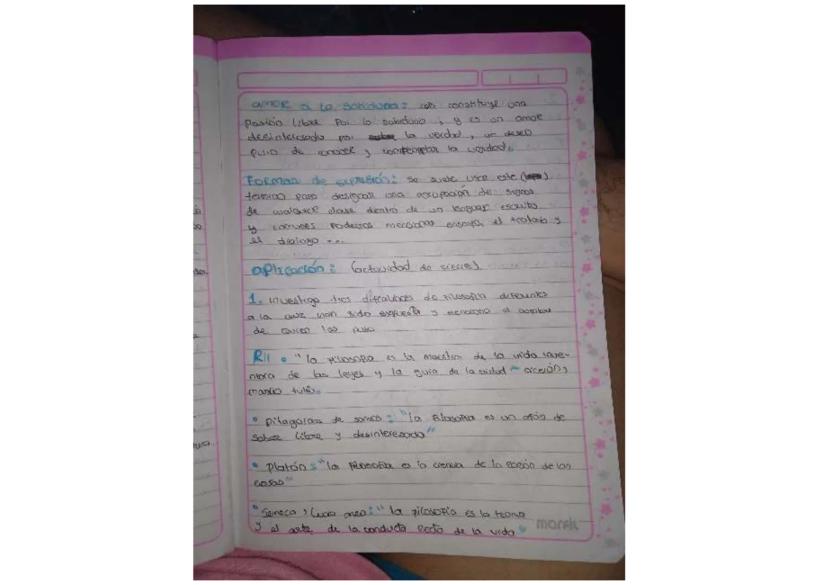 amor a la sabiduria: esta constituye una
Pasión libre Por la sabiduria, y es un amor
desinteresado por la verdad, un deseo
puro de conocer y contemplar la verdad.
Formas de expresión: se suele usar este
termino para designar una agrupación de signos
de cualquier clase dentro de un lenguaje escrito
y comunes Podemos mencionar ensayo, el tratado y
el dialogo ...
aplicación: (actividad de cierre)
1. investiga tres definiciones de filosofia diferentes
a la que han sido expuesta y menciona el
de quien las
R// • "la filosofia es la maestra de la vida inven-
tora de las leyes y la guia de la virtud" cicerón,
marco tulio.
• Pitagoras de samos: "la filosofia es un afán de
saber libre y desinteresado"
• Platón: "la filosofia es la ciencia de la razón de las
cosas"
• Seneca, Lucio aneo: "la filosofía es la teoria
y el arte de la conducta recta de la vida"
marfil